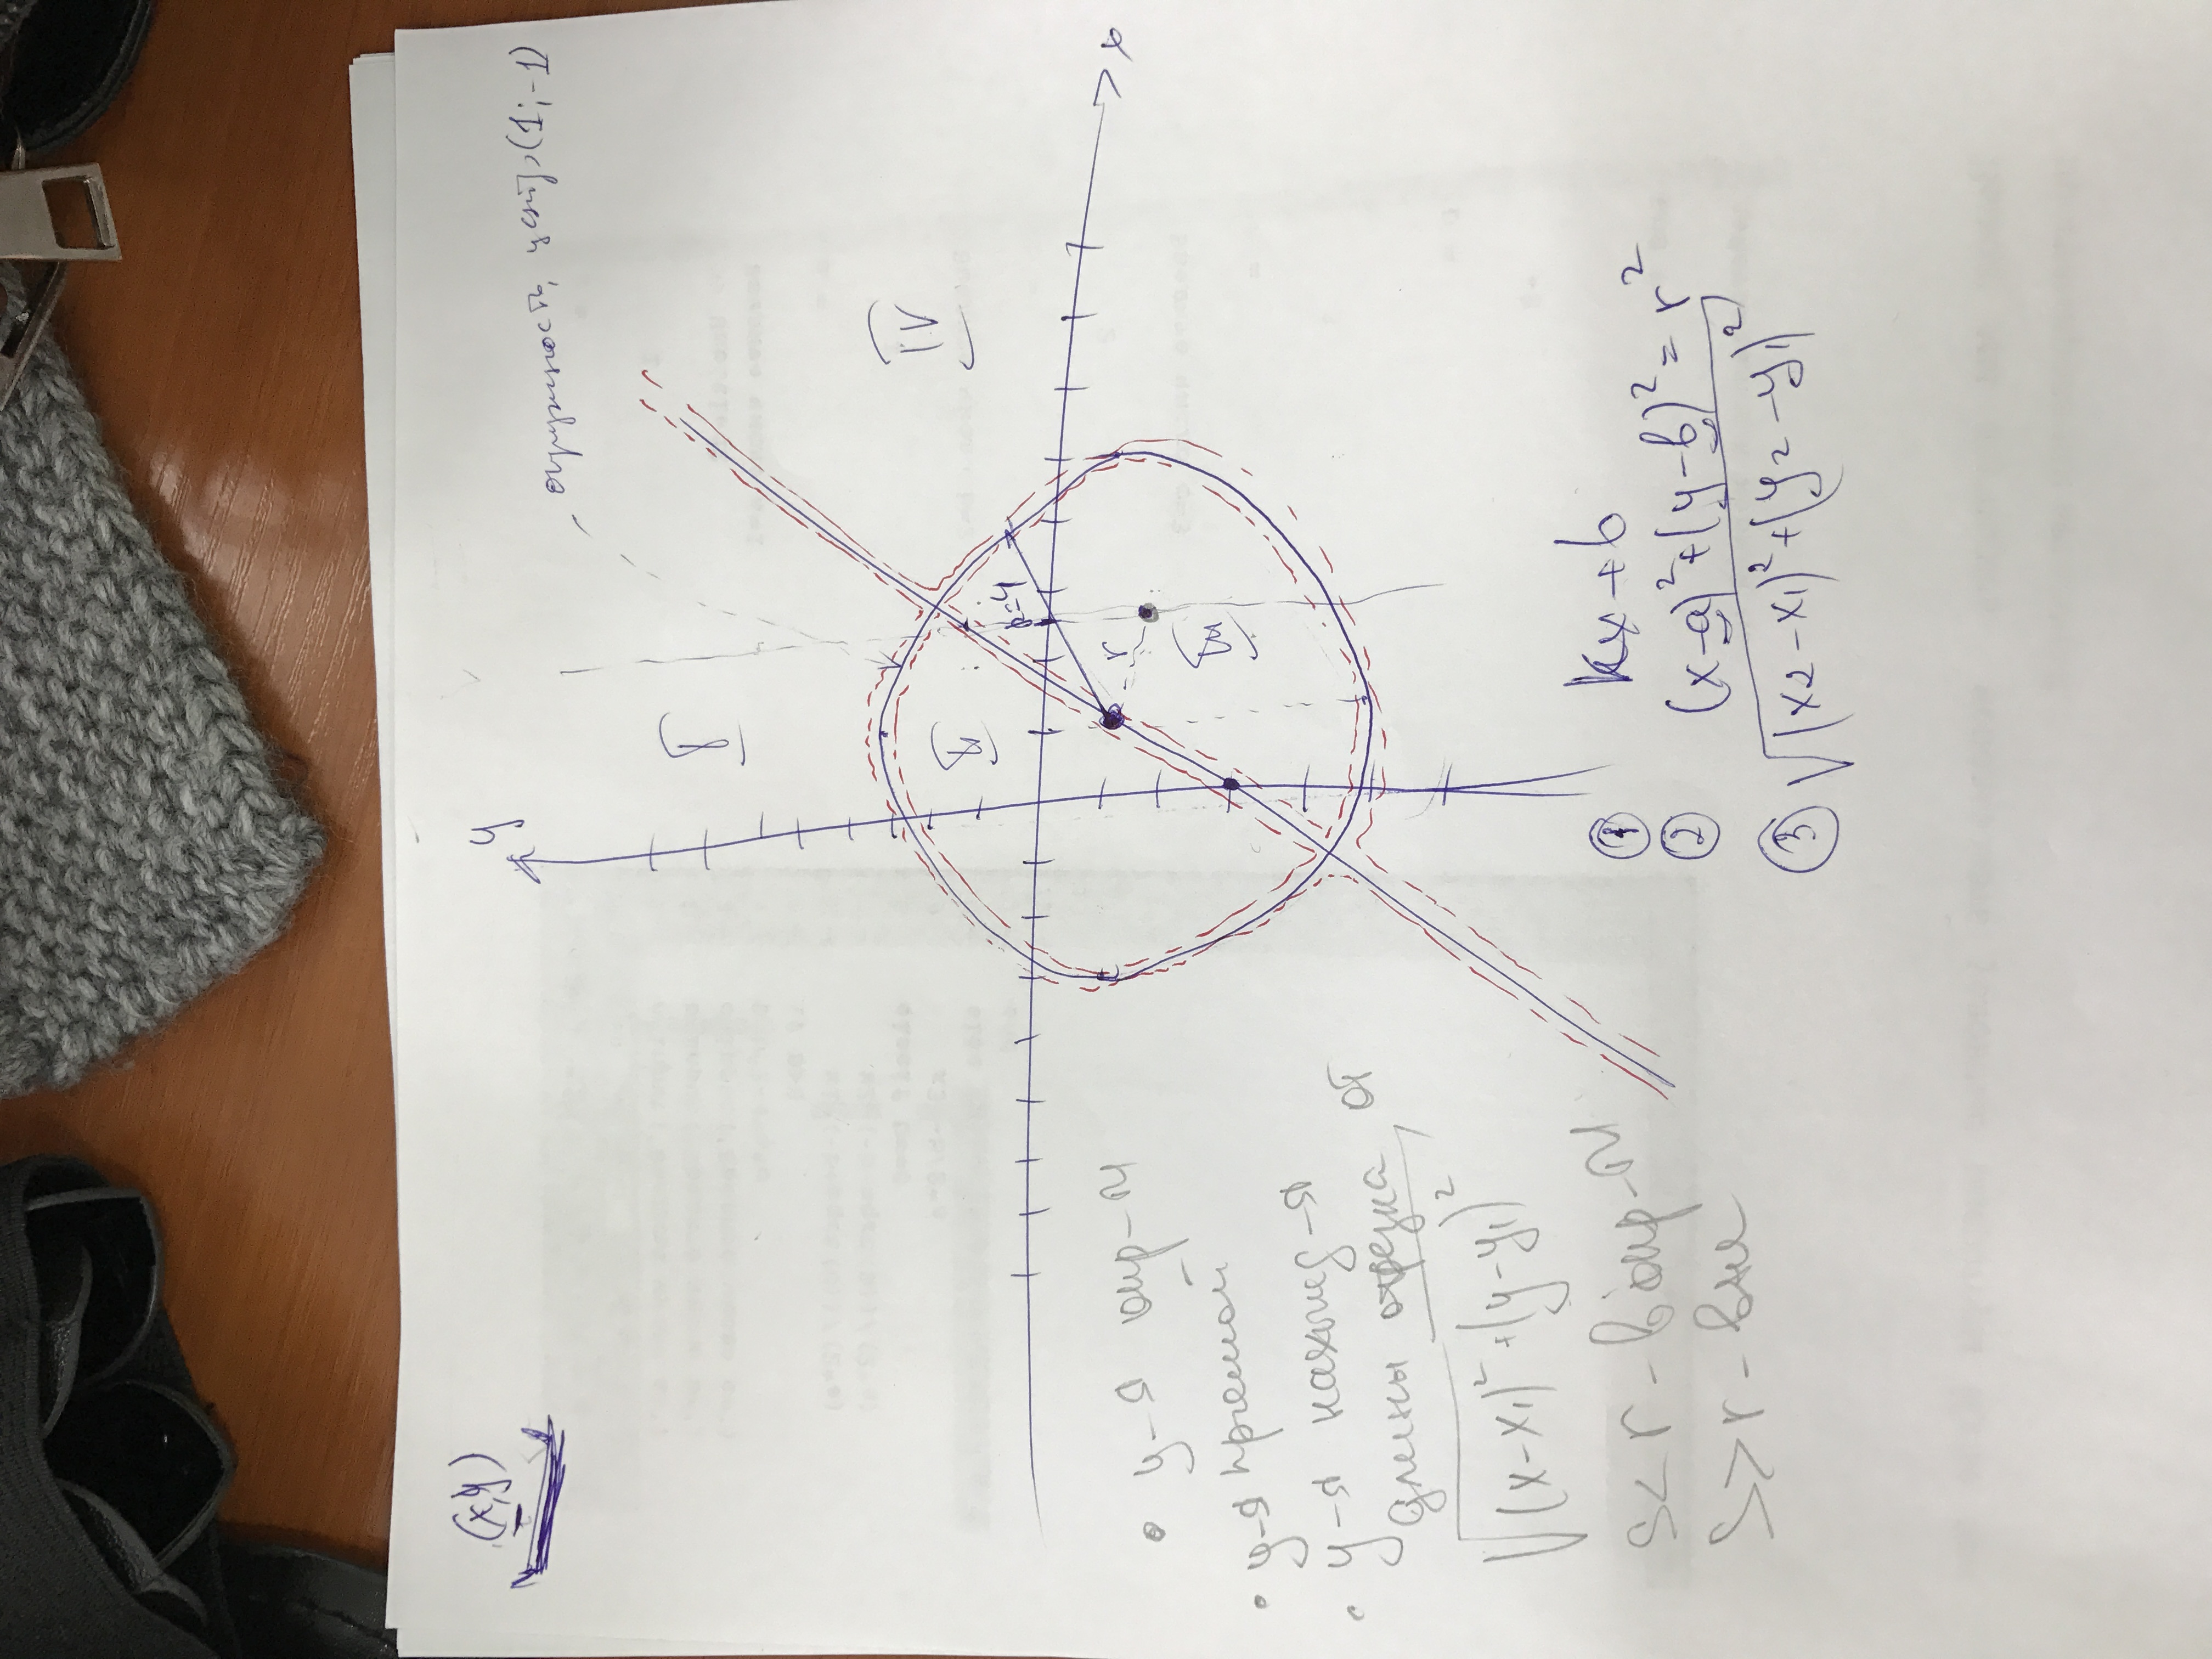 (x,y)
y
- окружность, центр (1;-1)
I
II
X
x
r=4
r
III
• у-я окр-и
• у-я прямой
• у-я наход-я
длины отрезка от
√(x-x1)²+(y-y1)²
S<r - в окр-и
S>r - вне
① kx+b
② (x-a)²+(y-b)²=r²
③ √(x2-x1)²+(y2-y1)²